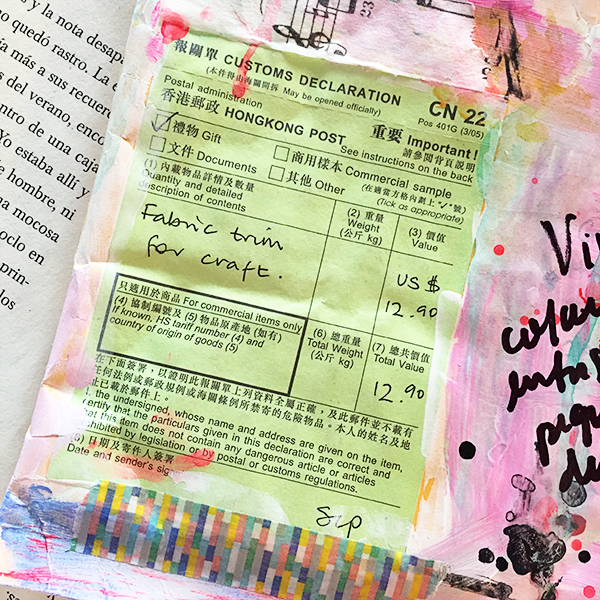 y la nota desapa
quedó rastro. La e
más a sus recuer
del verano, enco
ntro de una caja
Yo estaba allí y
e hombre, ni
a mocosa
oclo en
prin-
los
報關單 CUSTOMS DECLARATION
(本件得由海關開拆 May be opened officially)
Postal administration
CN 22
Pos 401G (3/05)
香港郵政 HONGKONG POST
重要 Important!
請參閱背頁說明
See instructions on the back
禮物 Gift
商用樣本 Commercial sample
文件 Documents
其他 Other
(在適當方格內劃上"✓"號)
(Tick as appropriate)
(1) 內載物品詳情及數量
Quantity and detailed
description of contents
(2) 重量
Weight
(公斤 kg)
(3) 價值
Value
Fabric trim
for craft.
US $
12.90
只適用於商品 For commercial items only
(4) 協制編號及 (5) 物品原產地 (如有)
If known, HS tariff number (4) and
country of origin of goods (5)
(6) 總重量
Total Weight
(公斤 kg)
(7) 總共價值
Total Value
12.90
在下面簽署，以證明此報關單上列資料全屬正確，及此郵件並不載有
任何法例或郵政規例或海關條例所禁寄的危險物品。本人的姓名及地
址已載於郵件上。
the undersigned, whose name and address are given on the item,
certify that the particulars given in this declaration are correct and
that this item does not contain any dangerous article or articles
prohibited by legislation or by postal or customs regulations.
日期及寄件人簽署
Date and sender's sig
Vi
color